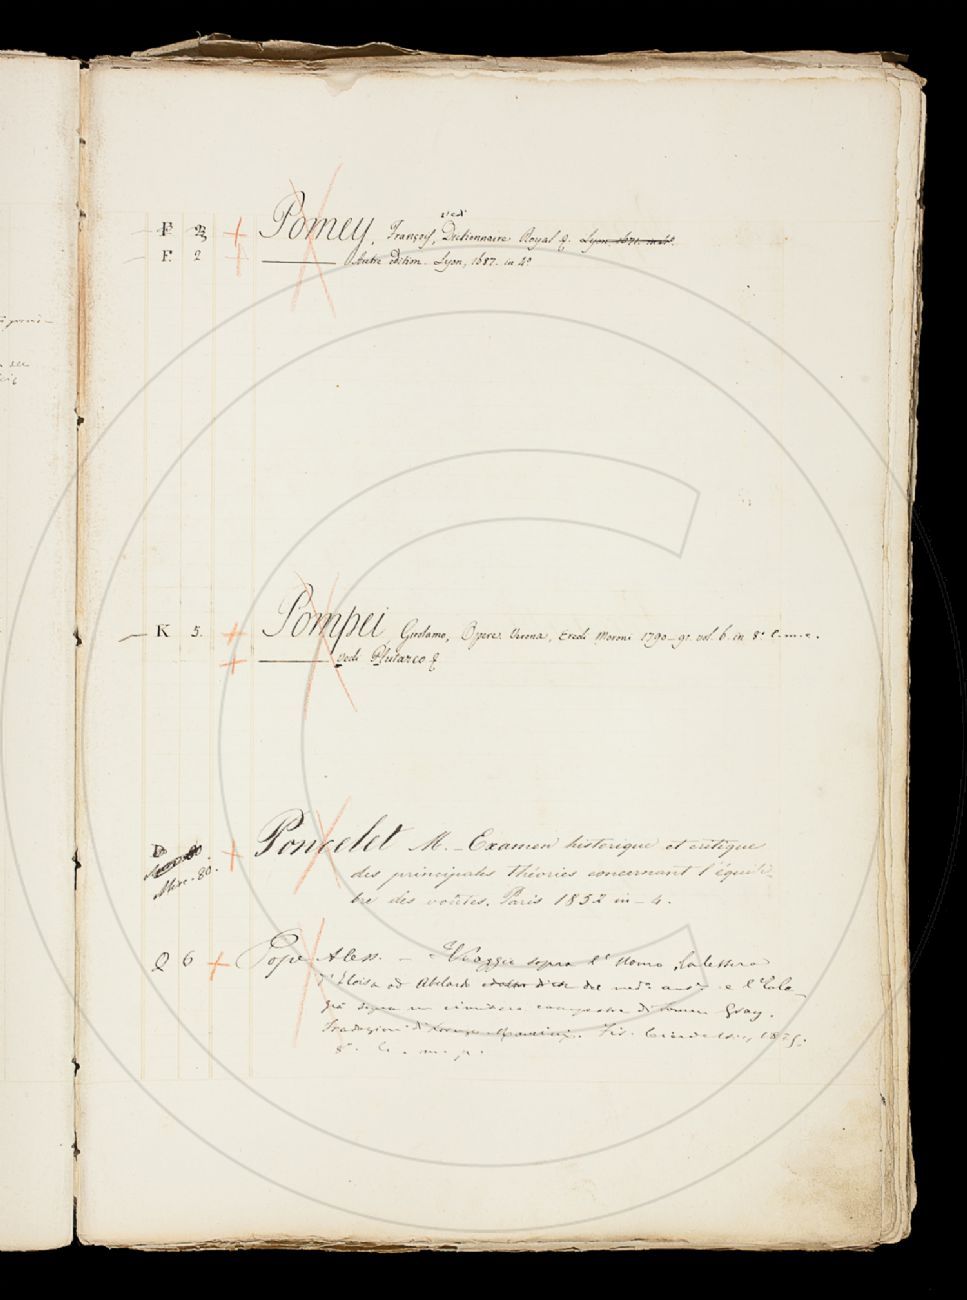 vedi
F 2 + Pomey, François, Dictionnaire Royal &. Lyon 1671. in 4º.
F. 2 + ——— Autre édition. Lyon, 1687. in 4º
K 5. + Pompei Girolamo, Opere. Verona, Eredi Moroni 1790–91. vol. 6. in 8º
+ ——— vedi Plutarco &
D + Poncelet M. – Examen historique et critique
Misc. 80. des principales théories concernant l'équili-
bre des voûtes. Paris 1852 in – 4.
Q 6 + Pope Aless. – sopra l'Uomo, la lettera
d'Eloisa ad Abelardo e l'Ele-
gia sopra un cimitero campestre di Gray.
Traduzioni di
8º.